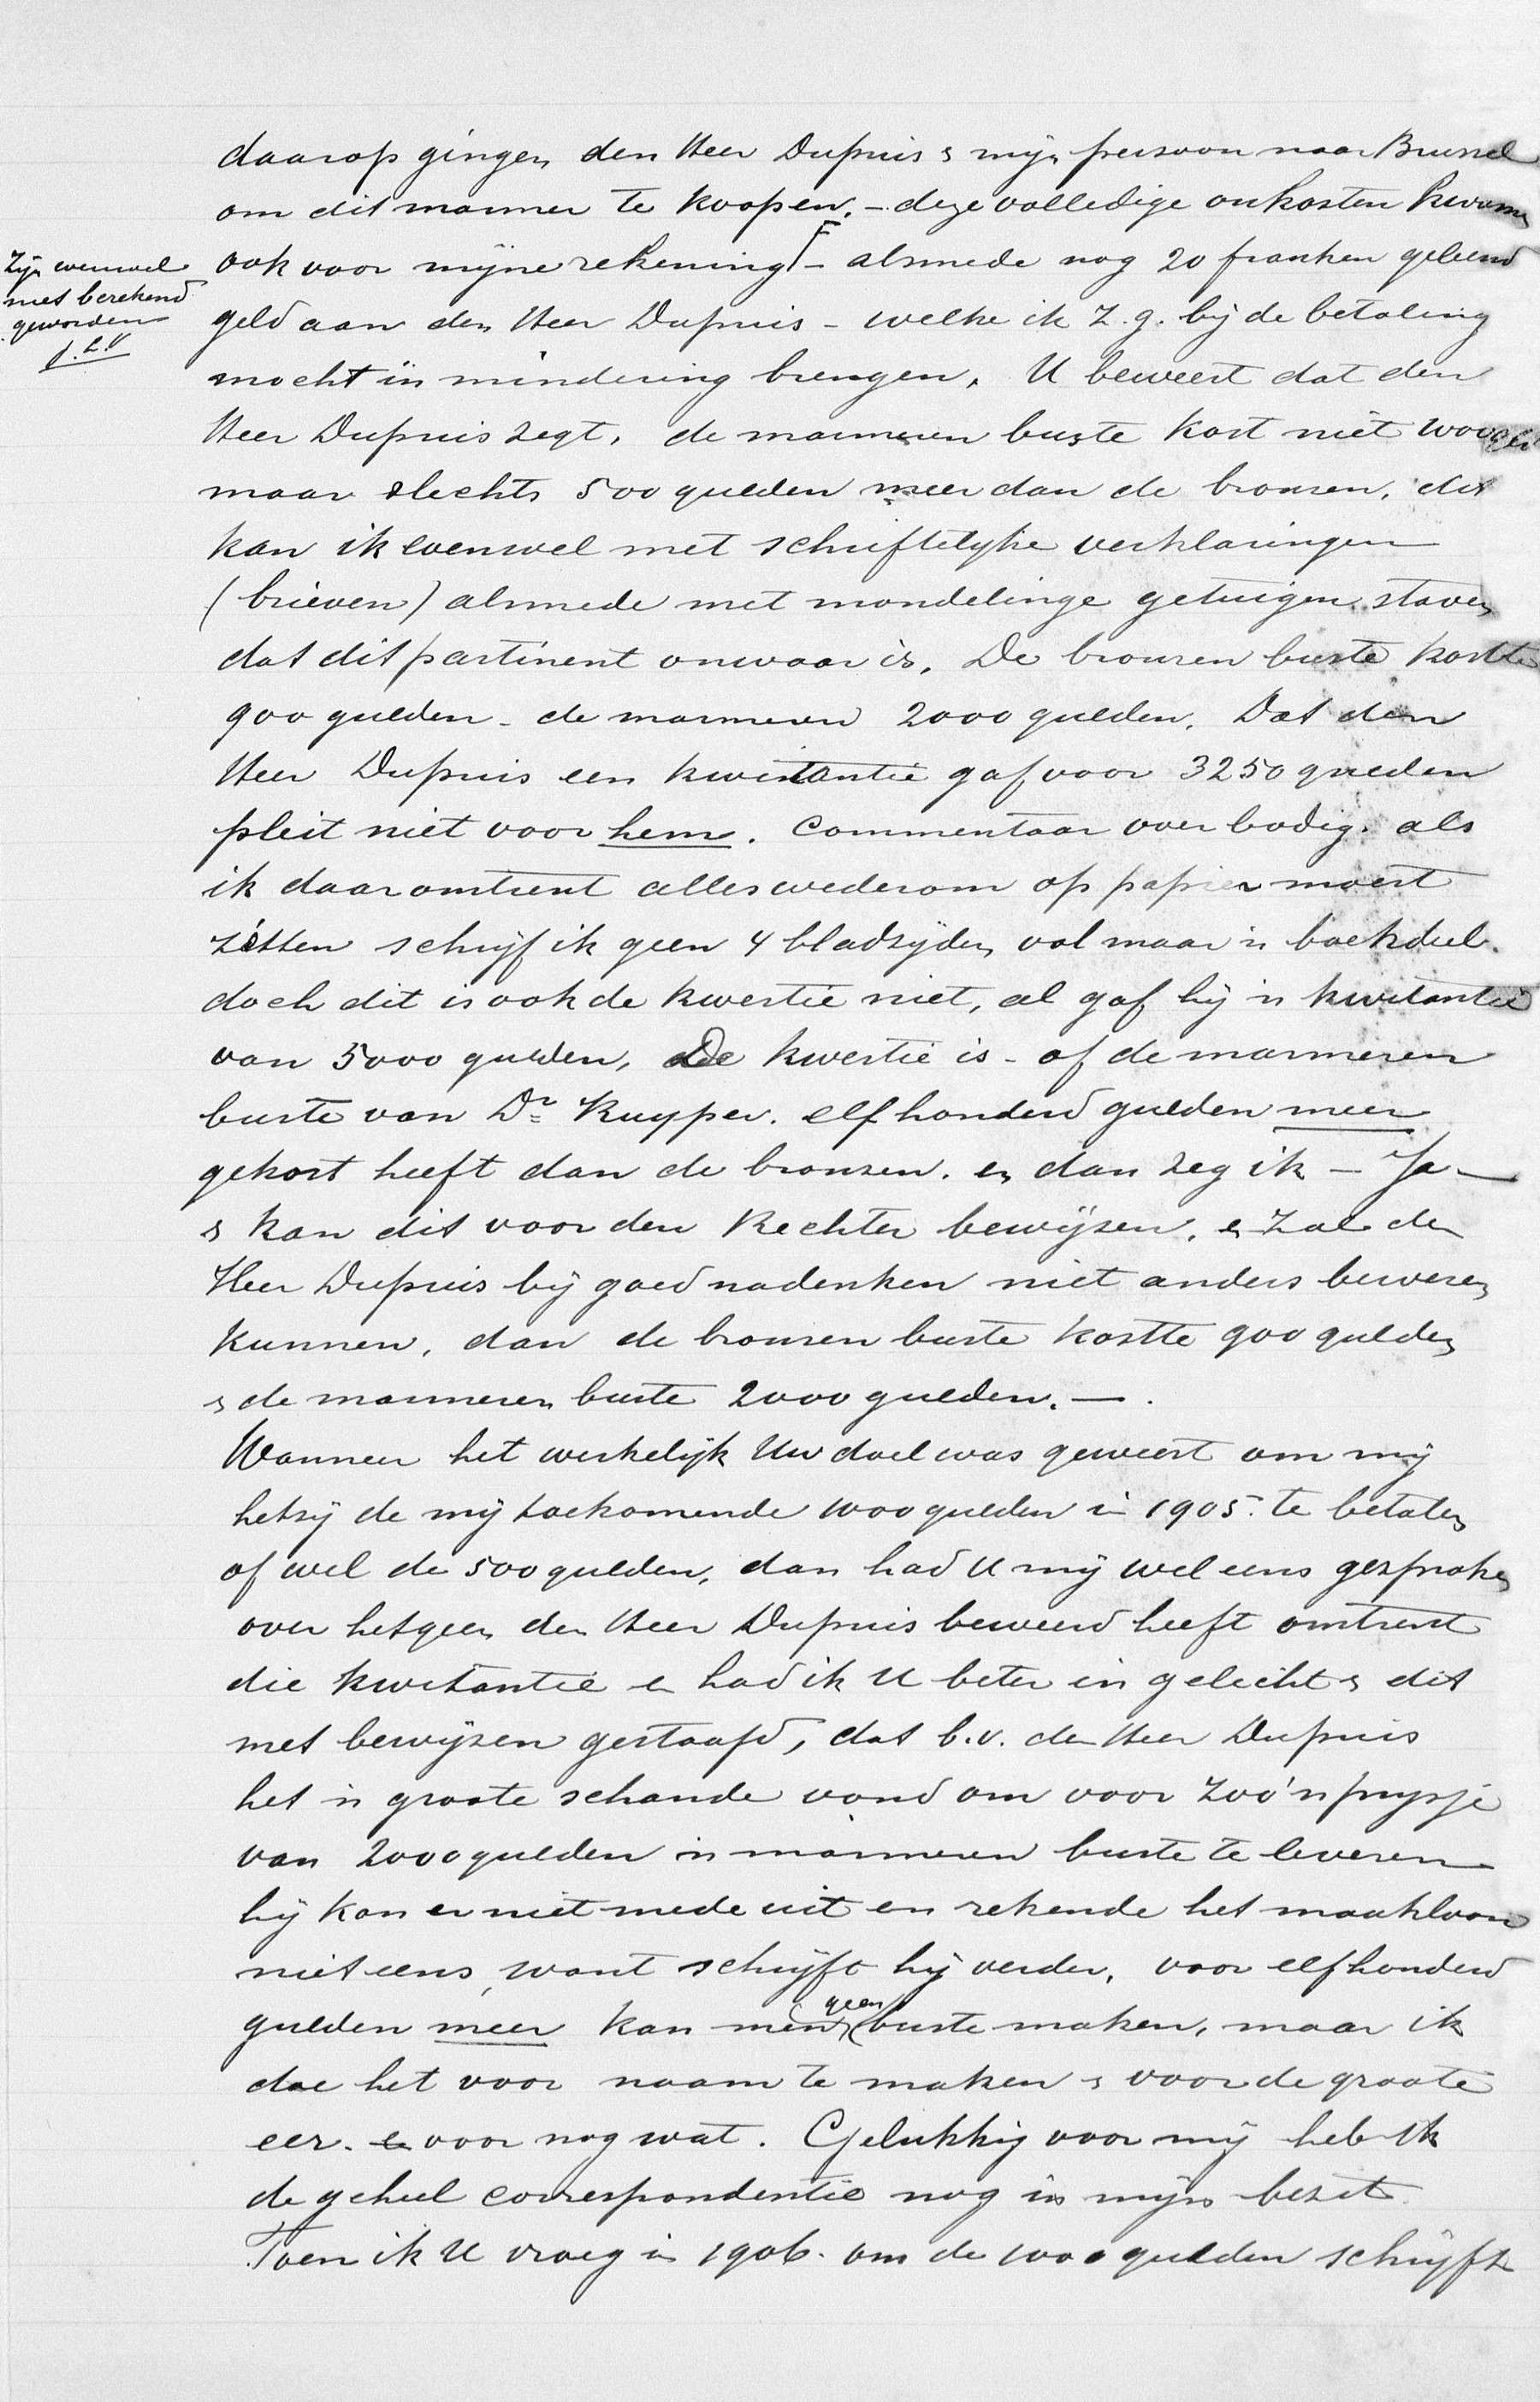 daarop gingen den Heer Dupuis & mijn persoon naar Brussel
om dit marmer te koopen. – deze volledige onkosten kwamen
ook voor mijne rekening – alsmede nog 20 franken geleend
Zijn evenwel
niet berekend
geworden
geld aan den Heer Dupuis – welke ik z.g. bij de betaling
mocht in mindering brengen. U beweert dat den
Heer Dupuis zegt, de marmeren buste kost niet 1100 gld
maar slechts 500 gulden meer dan de bronzen, dit
kan ik evenwel met schriftelijke verklaringen
(brieven) alsmede met mondelinge getuigen staven
dat dit partinent onwaar is. De bronzen buste kostte
900 gulden – de marmeren 2000 gulden. Dat den
Heer Dupuis een kwitantie gaf voor 3250 gulden
pleit niet voor hem. Commentaar overbodig. als
ik daaromtrent alles wederom op papier moest
zetten schrijf ik geen 4 bladzijden vol maar 'n boekdeel.
doch dit is ook de kwestie niet, al gaf hij 'n kwitantie
van 5000 gulden, De kwestie is – of de marmeren
buste van Dr Kuyper. elf honderd gulden meer
gekost heeft dan de bronzen. en dan zeg ik – Ja –
& kan dit voor den Rechter bewijzen. en zal den
Heer Dupuis bij goed nadenken niet anders beweren
kunnen, dan de bronzen buste kostte 900 gulden
& de marmeren buste 2000 gulden. – .
Wanneer het werkelijk Uw doel was geweest om mij
hetzij de mij toekomende 1100 gulden in 1905. te betalen
of wel de 500 gulden, dan had U mij wel eens gesproken
over hetgeen den Heer Dupuis beweerd heeft omtrent
die kwitantie en had ik U beter ingelicht & dit
met bewijzen gestaafd, dat b.v. den Heer Dupuis
het 'n groote schande vond om voor zoo'n prijsje
van 2000 gulden 'n marmeren buste te leveren
hij kon er niet mede uit en rekende het maakloon
niet eens, want schrijft hij verder, voor elfhonderd
gulden meer kan men geen buste maken, maar ik
doe het voor naam te maken & voor de groote
eer. en voor nog wat. Gelukkig voor mij heb ik
de geheel correspondentie nog in mijn bezit.
Toen ik U vroeg in 1906. om de 1100 gulden schrijft